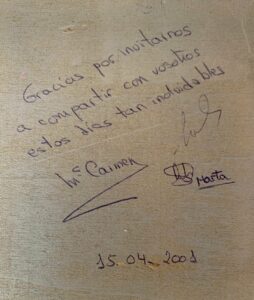 Gracias por invitarnos
a compartir con vosotros
estos días tan inolvidables
Mª Carmen
Marta
15.04.2001